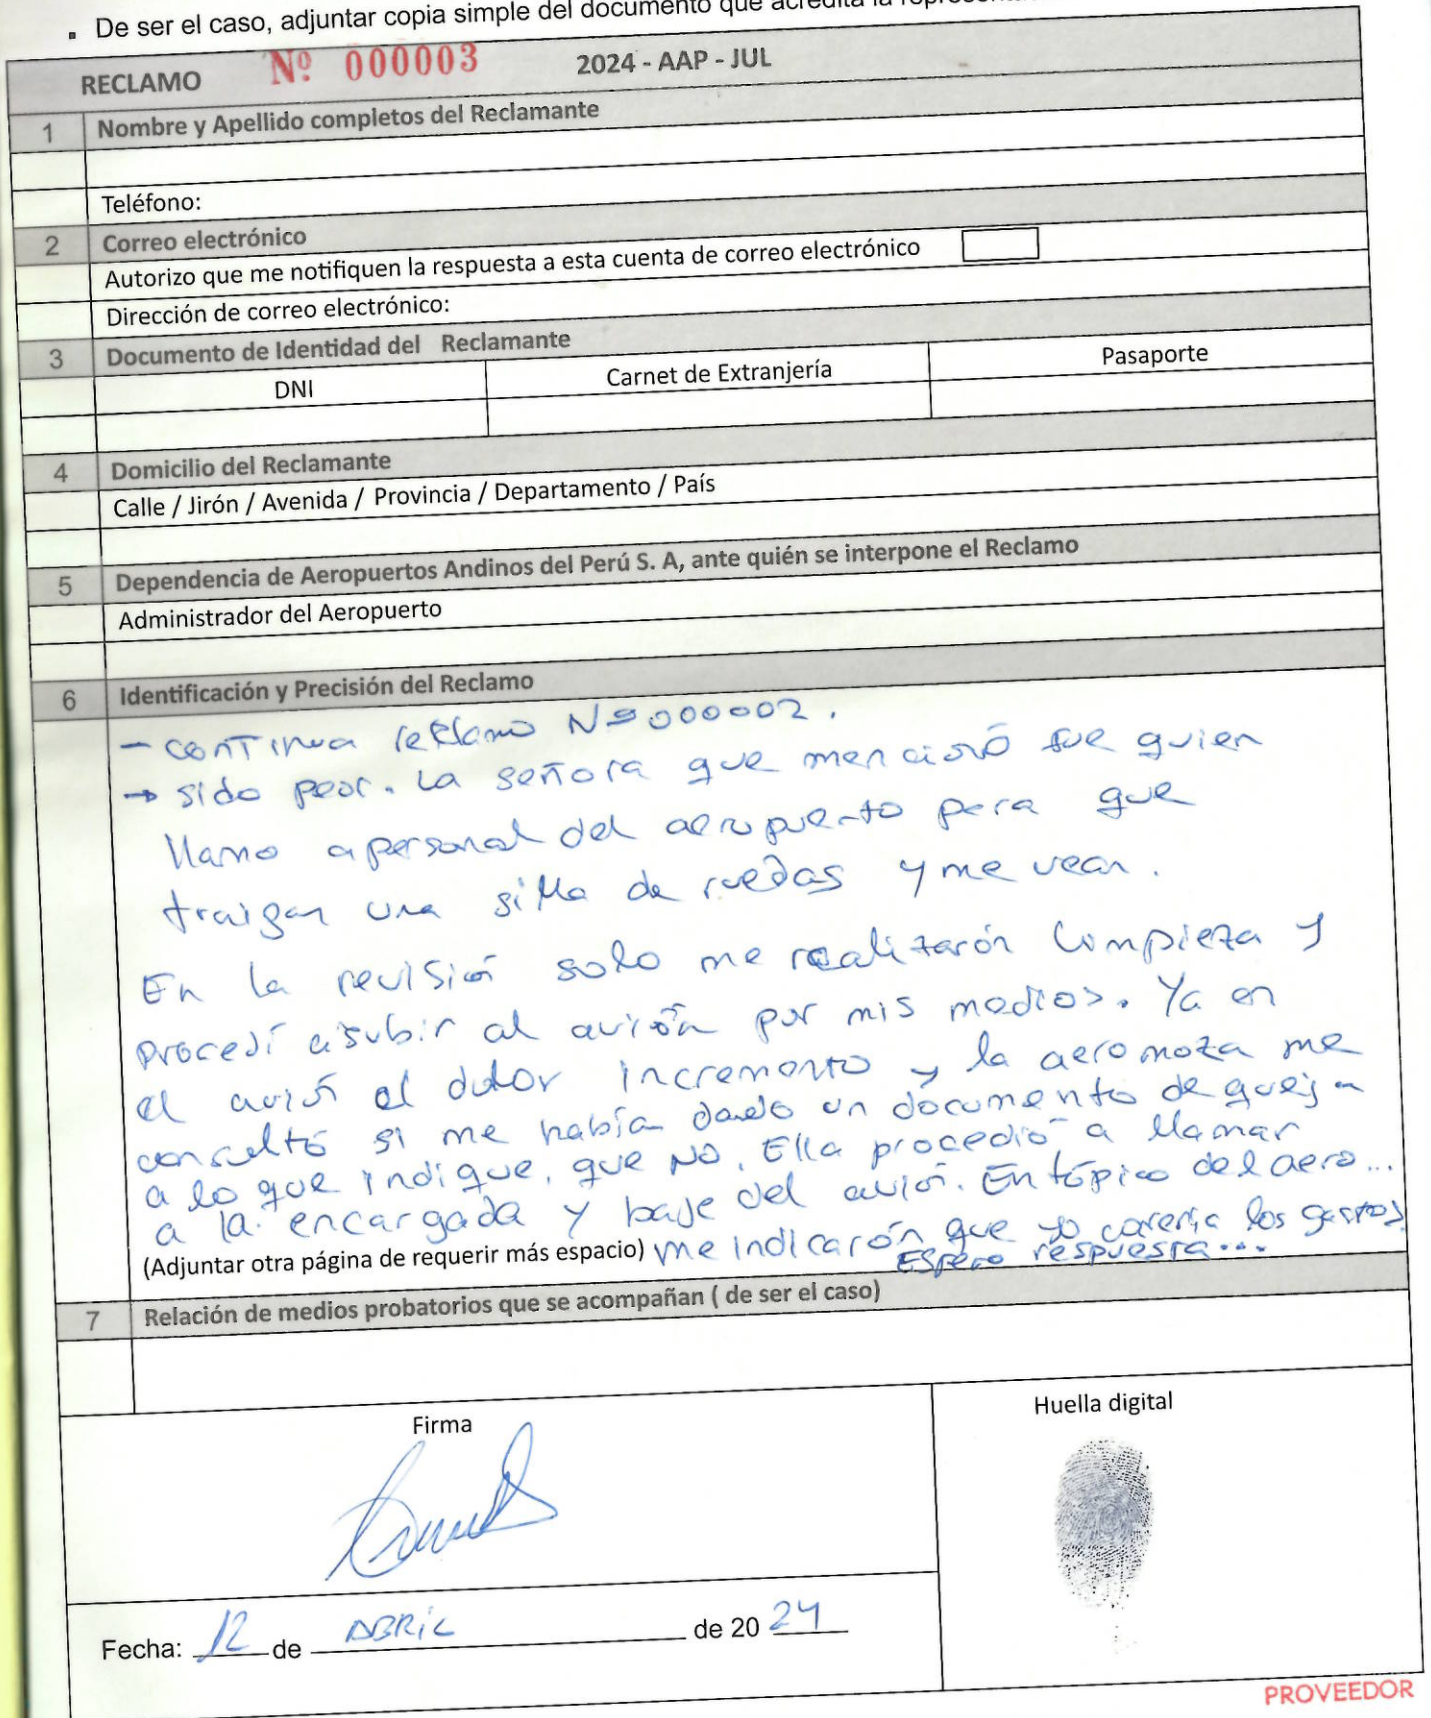 ▪ De ser el caso, adjuntar copia simple del documento que acredita la
RECLAMO Nº 000003 2024 - AAP - JUL
1 Nombre y Apellido completos del Reclamante
Teléfono:
2 Correo electrónico
Autorizo que me notifiquen la respuesta a esta cuenta de correo electrónico
Dirección de correo electrónico:
3 Documento de Identidad del Reclamante
DNI Carnet de Extranjería Pasaporte
4 Domicilio del Reclamante
Calle / Jirón / Avenida / Provincia / Departamento / País
5 Dependencia de Aeropuertos Andinos del Perú S. A, ante quién se interpone el Reclamo
Administrador del Aeropuerto
6 Identificación y Precisión del Reclamo
- continua reklamo Nº 000002.
→ sido peor. La señora que mencionó fue quien
llamo a personal del aeropuerto para que
traigan una silla de ruedas y me vean.
En la revisión solo me realizarón limpieza y
procedí a subir al avión por mis medios. Ya en
el avión el dolor incremento y la aeromoza me
consultó si me había dado un documento de queja
a lo que indique, que NO. Ella procedió a llamar
a la encargada y baje del avión. En tópico del aero...
(Adjuntar otra página de requerir más espacio) me indicarón que yo correría los gastos
Espero respuesta...
7 Relación de medios probatorios que se acompañan ( de ser el caso)
Firma Huella digital
Fecha: 12 de ABRIL de 20 24
PROVEEDOR